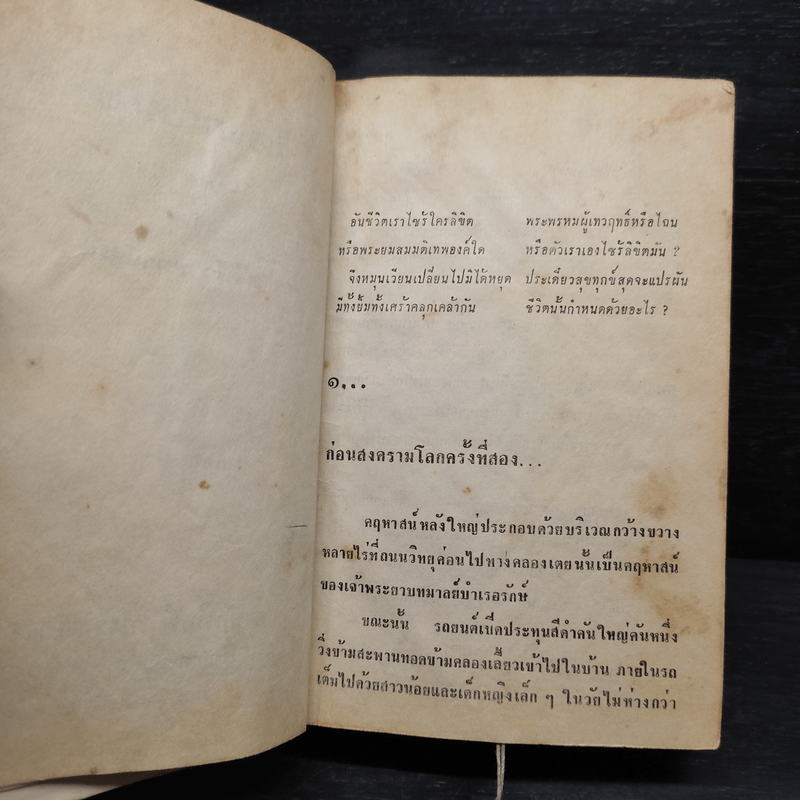 อันชีวิตเราไซร้ใครลิขิต พระพรหมผู้เทวฤทธิ์หรือไฉน
หรือพระยมสมมติเทพองค์ใด หรือตัวเราเองไซร้ลิขิตมัน ?
จึงหมุนเวียนเปลี่ยนไปมิได้หยุด ประเดี๋ยวสุขทุกข์สุดจะแปรผัน
มีทั้งยิ้มทั้งเศร้าคลุกเคล้ากัน ชีวิตนั้นกำหนดด้วยอะไร ?
๑...
ก่อนสงครามโลกครั้งที่สอง...
คฤหาสน์หลังใหญ่ประกอบด้วยบริเวณกว้างขวาง
หลายไร่ที่ถนนวิทยุค่อนไปทางคลองเตยนั้นเป็นคฤหาสน์
ของเจ้าพระยาบทมาลย์บำเรอรักษ์
ขณะนั้น รถยนต์เปิดประทุนสีดำคันใหญ่คันหนึ่ง
วิ่งข้ามสะพานทอดข้ามคลองเลี้ยวเข้าไปในบ้าน ภายในรถ
เต็มไปด้วยสาวน้อยและเด็กหญิงเล็ก ๆ ในวัยไม่ห่างกว่า